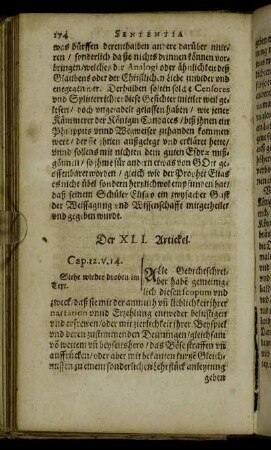 174 SENTENTIA
was dürffen derenthalben andere darüber nuttiren / sonderlich da sie nichts drinnen können vorbringen / welches der Analogi oder ähnlichkeit deß
Glaubens oder der Christlichen Liebe zuwider und
entgegen wer. Derhalben solten solche Censores
und Splitterrichter diese Gesichter mitler weil gelesen / doch ungetadelt gelassen haben / wie jener
Kämmerer der Königin Candaces / biß ihnen ein
Philippus vnnd Wegweiser zuhanden kommen
were / der sie ihnen außgelegt vnd erkläret hette /
vnnd sollens mit nichten dem guten Esdrae mißgönnen / so jhme für andern etwas von GOtt geoffenbaret worden / gleich wie der Prophet Elias
es nicht übel sondern herzlich wol empfunden hat /
daß seinem Schüler Elisaeo ein zwyfacher Geist
der Weissagung vnd Wissenschafft mitgetheilet
vnd gegeben wurde.
Der XLI. Artickel.
Cap. 12. v. 14.
Siehe wieder droben im
Text.
Alle Gedichtschreiber habē gemeiniglich diesen Scopum und
zweck / daß sie mit der anmuth vñ lieblichkeit ihrer
narration vnnd Erzehlung entweder belustigen
und erfrewen / oder mit zierlichkeit ihrer Beyspiel
und deren zustimmenden Deutungen / gleichsam
võ weitem vñ beyseitshero / das Böse straffen vñ
auffrücken / oder aber mit bekanten kurtzē Gleichnussen zu einem sonderlichen Lehrstück anleytung
geben